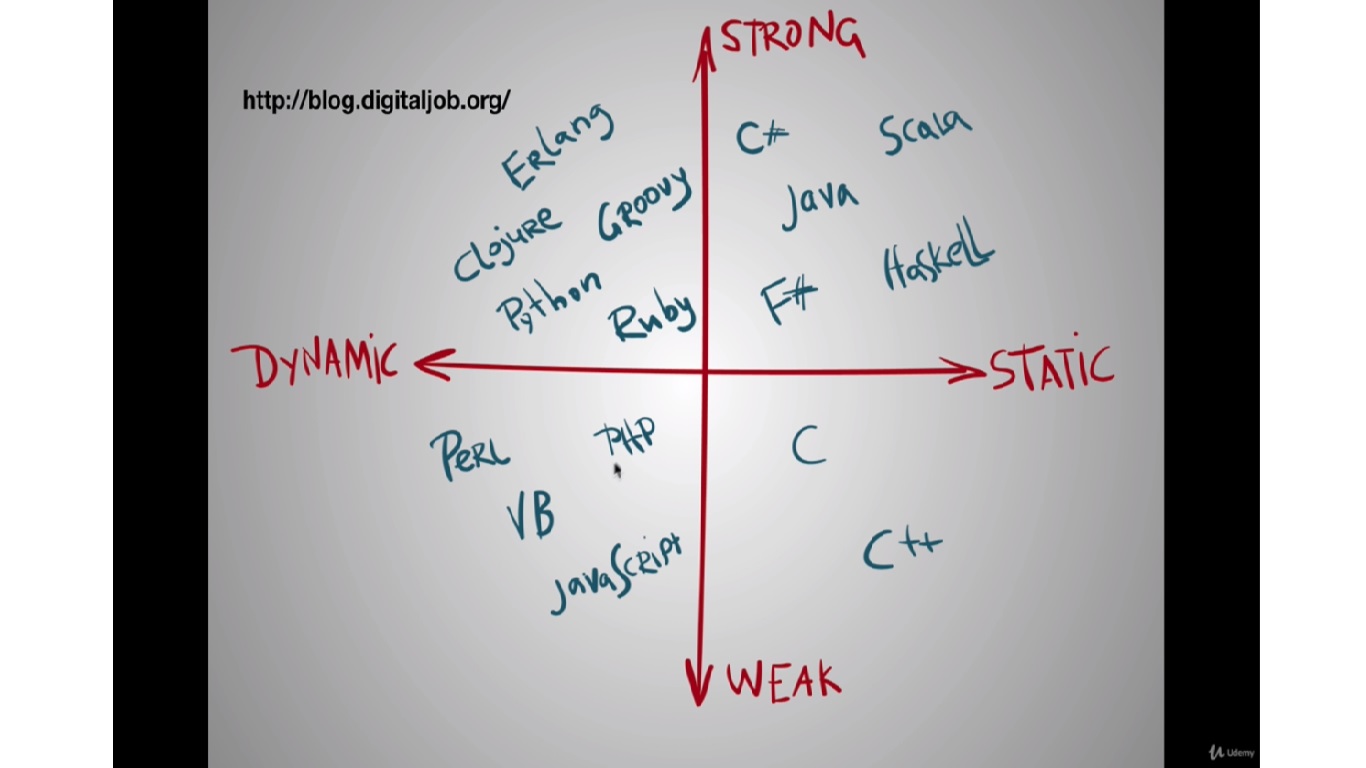 STRONG
http://blog.digitaljob.org/
Erlang
C#
Scala
Clojure
Groovy
Java
Python
Ruby
F#
Haskell
DYNAMIC
STATIC
PERL
PHP
C
VB
JavaScript
C++
WEAK
Udemy